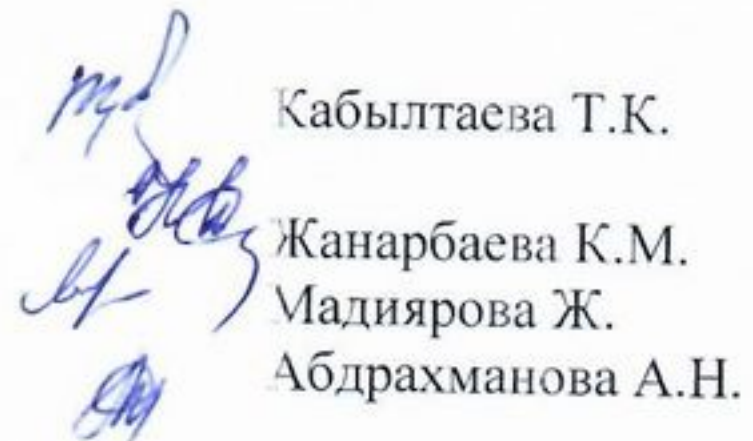 Кабылтаева Т.К.
Жанарбаева К.М.
Мадиярова Ж.
Абдрахманова А.Н.